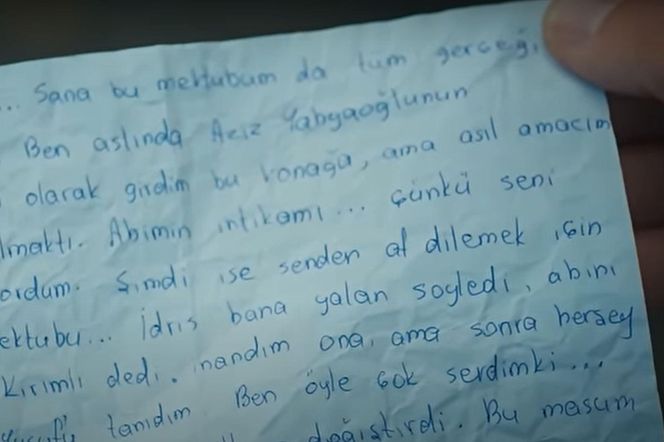 ... Sana bu mektubum da tüm gerceği
Ben aslında Aziz Yabgaoğlunun
olarak girdim bu konağa, ama asıl amacım
lmaktı. Abimin intikamı... çünkü seni
ordum. Şimdi ise senden af dilemek için
ektubu... İdris bana yalan soyledi, abini
Kırımlı dedi. inandım ona, ama sonra herşey
tanıdım Ben öyle çok serdimki...
doğiştirdi. Bu masum